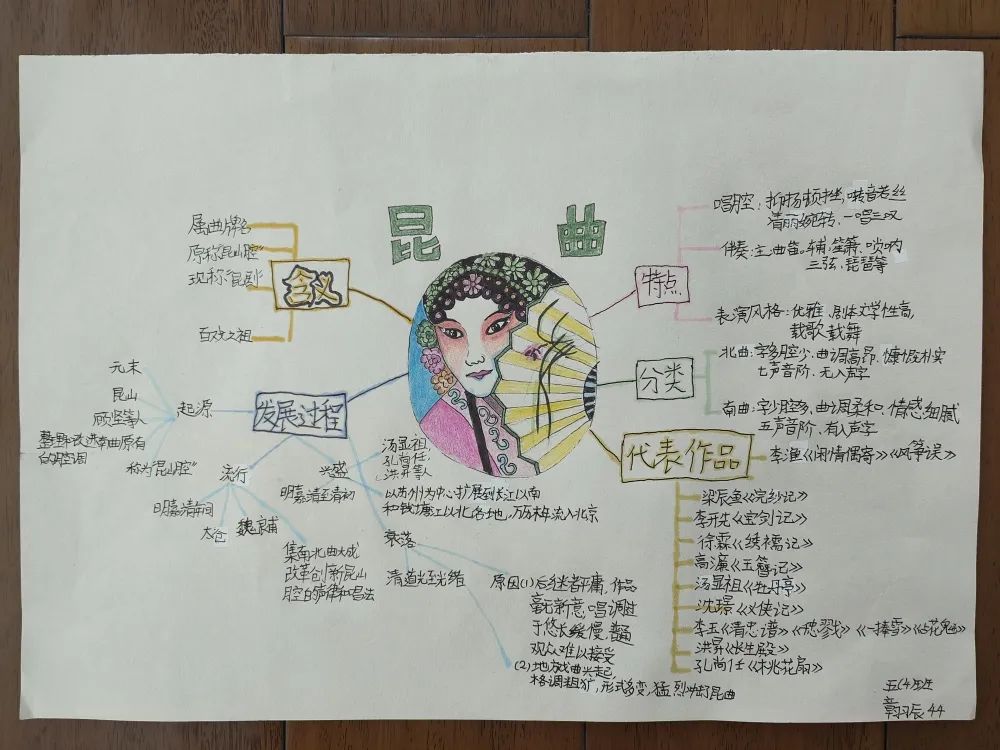 昆 曲
含义
属曲牌名
原称"昆山腔"
现称"昆剧"
百戏之祖
发展过程
起源
元末
昆山
顾坚等人
整理和改进南曲原有
的唱腔调
称为"昆山腔"
流行
明嘉靖年间
太仓
魏良辅
集南北曲大成
改革创新昆山
腔的声律和唱法
兴盛
明嘉靖至清初
汤显祖
孔尚任、
洪昇等人
以苏州为中心扩展到长江以南
和钱塘江以北各地,万历末年流入北京
衰落
清道光至光绪
原因(1)后继者平庸,作品
毫无新意,唱调过
于悠长缓慢,普通
观众难以接受
(2)地方戏曲兴起,
格调粗犷,形式多变,猛烈冲击昆曲
特点
唱腔:抑扬顿挫、啭音若丝
清丽婉转、一唱三叹
伴奏:主、曲笛、辅、笙箫、唢呐
三弦、琵琶等
表演风格:优雅、剧本文学性高,
载歌载舞
分类
北曲:字多腔少、曲调高昂、慷慨朴实
七声音阶、无入声字
南曲:字少腔多、曲调柔和、情感细腻
五声音阶、有入声字
代表作品
李渔《闲情偶寄》《风筝误》
梁辰鱼《浣纱记》
李开先《宝剑记》
徐霖《绣襦记》
高濂《玉簪记》
汤显祖《牡丹亭》
沈璟《义侠记》
李玉《清忠谱》《千忠戮》《一捧雪》《占花魁》
洪昇《长生殿》
孔尚任《桃花扇》
五(4)班
44